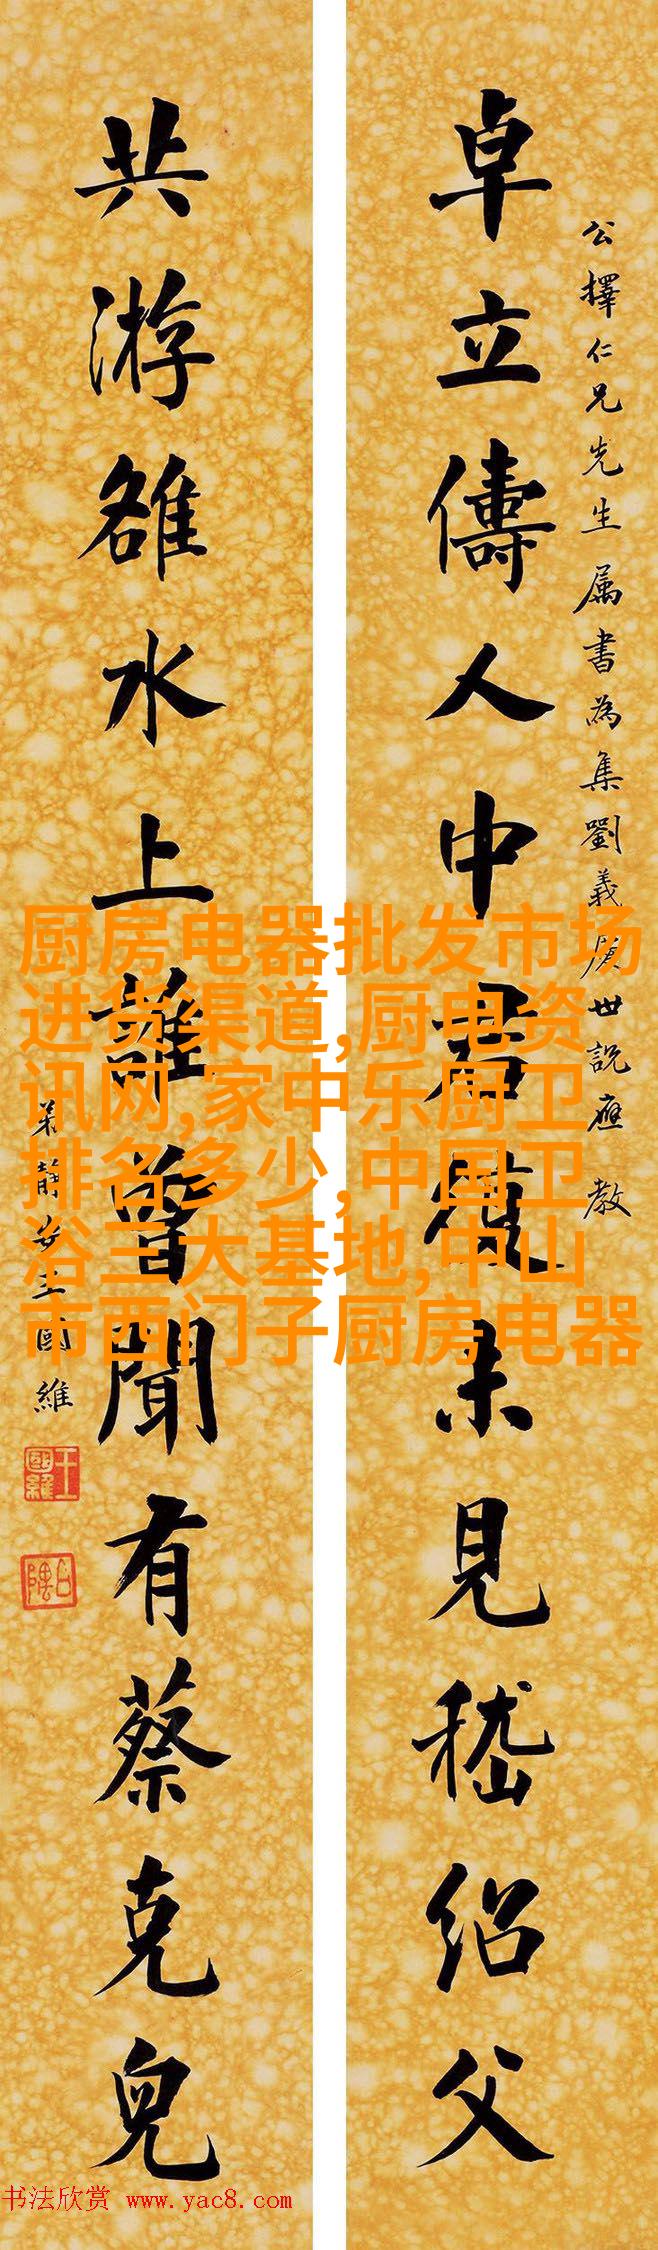 公擇仁兄先生属書為集劉義慶世說應教
卓立儔人中君復未見嵇紹父
共游雒水上誰曾聞有蔡克兒
弟靜安王國維
王國維
厨房电器批发市场
进货渠道,厨电资
讯网,家中乐厨卫
排名多少,中国卫
浴三大基地,中山
市西门子厨房电器
书法欣赏 www.yac8.com